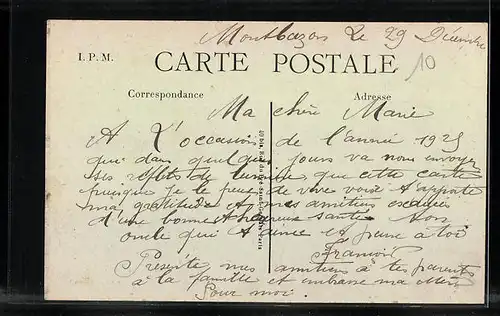 Montbazon Le 29 Décembre
10
I.P.M. CARTE POSTALE
Correspondance Adresse
Ma chère Marie
A L'occasion de l'année 1925
qui dans quelques jours va nous envoyer
ses reflets de lumière que cette carte
puisque je le peux de vive voix t'apporte
ma gratitude et mes amitiés
d'une bonne et heureuse santé Ton
oncle qui t'aime et pense à toi
Présente mes amitiés à tes parents
à la famille et embrasse ma
Pour moi